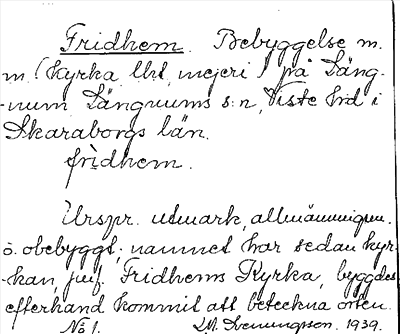 Fridhem. Bebyggelse m.
m. (kyrka, lht, mejeri) på Läng-
-num Längnums s:n, Viste hrd i
Skaraborgs län.
frìdhem.
Urspr. utmark, allmänningen.
o. obebyggt; namnet har sedan kyr-
-kan, jmf. Fridhems Kyrka, byggdes
efterhand kommit att beteckna orten.
No 1. 1939.